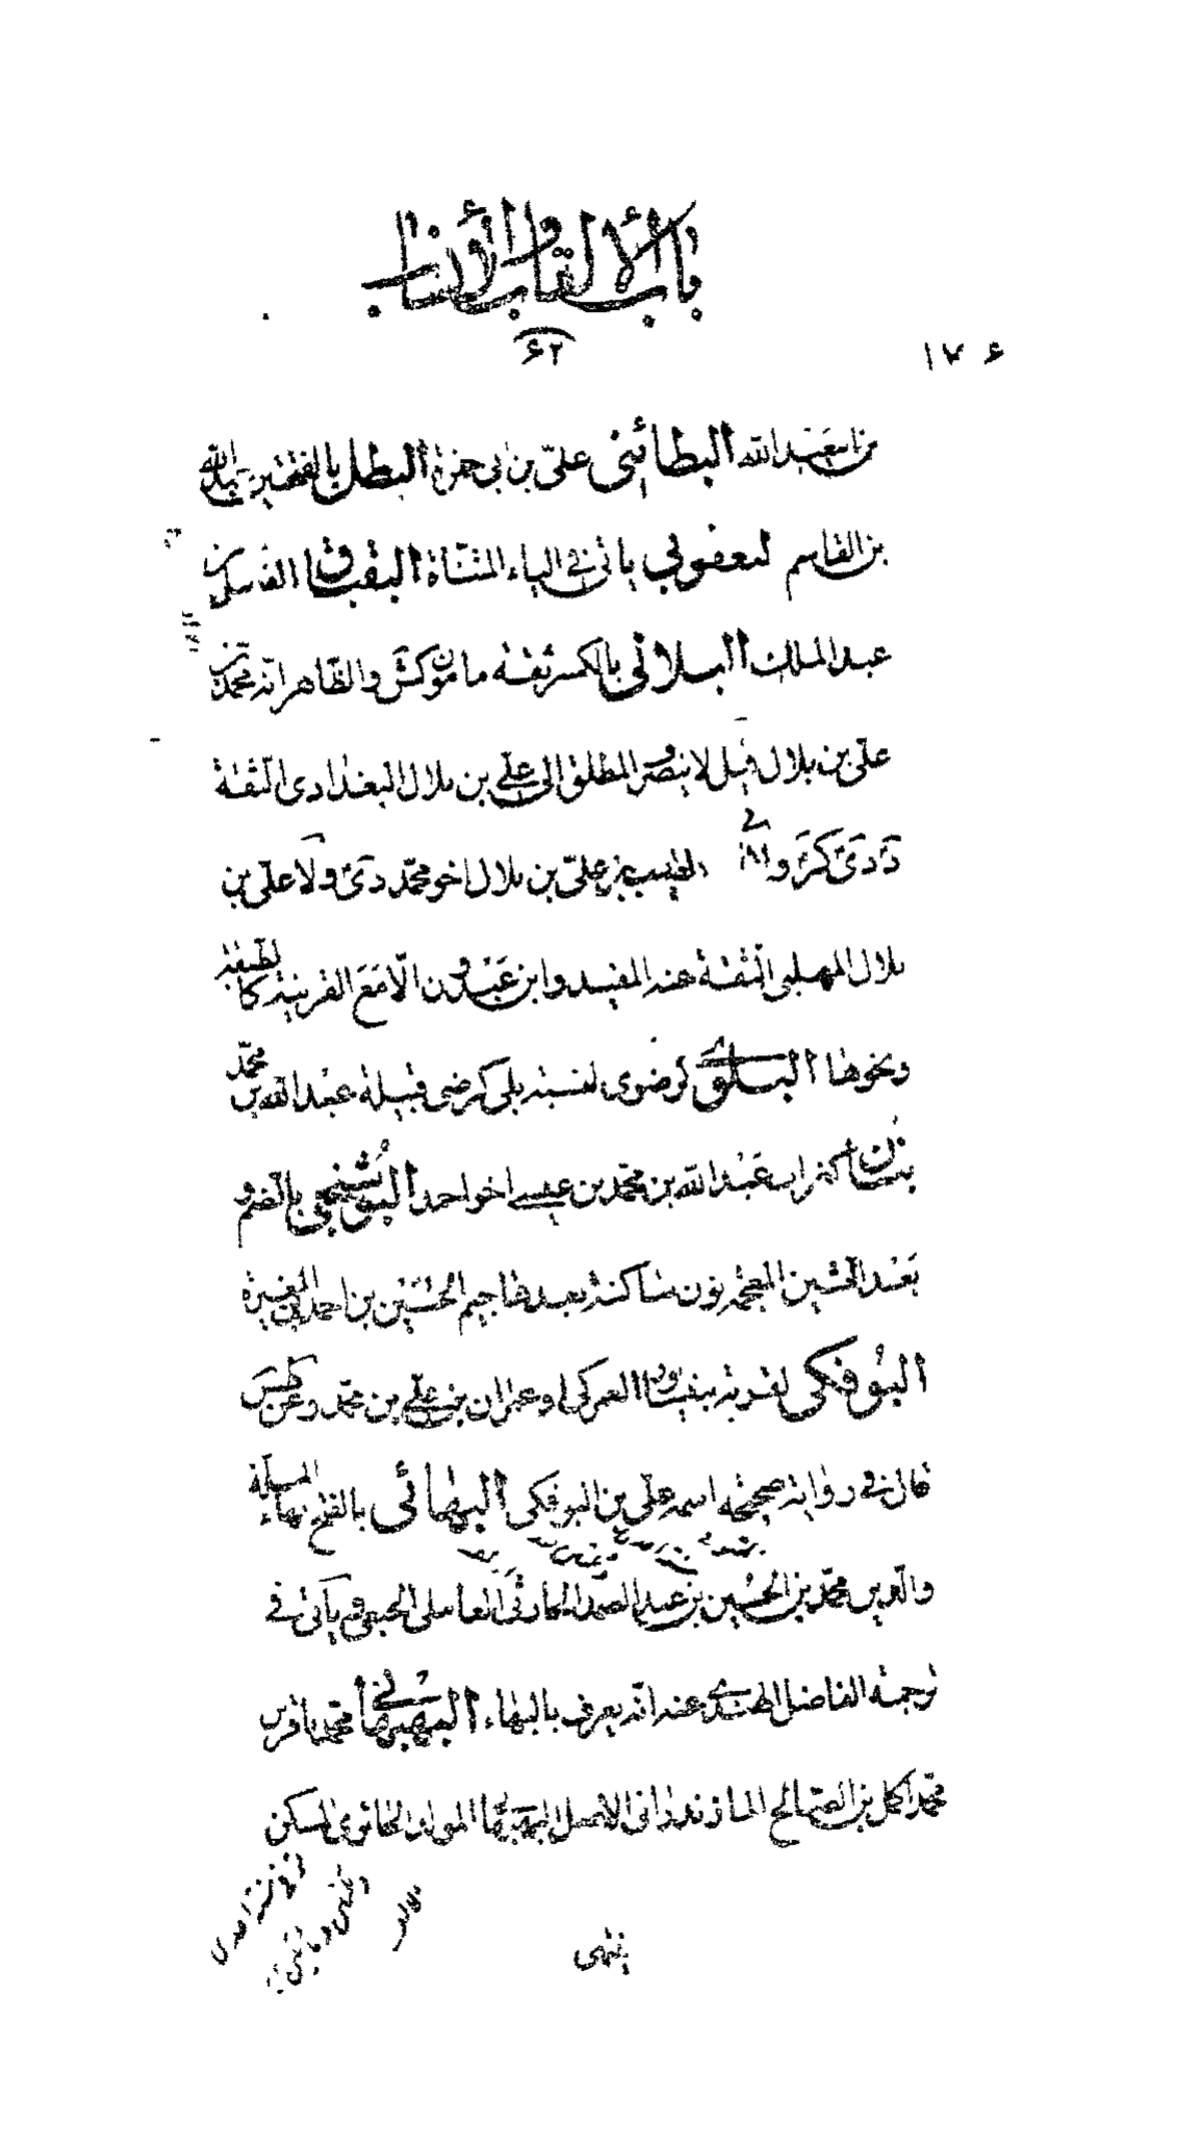 باب الألقاب والأنساب
۶۲
۱۷۶
بن عبد الله البطائني علي بن أبي حمزة البطل بالفتحتين عبد الله
بن القاسم لبعقوبي يأتي في الياء المثناة البقباق الفضل بن
عبد الملك البلالي بالكسر ثقة مأمون كش والظاهر انه محمد بن
علي بن بلال قيل لا ينصرف المطلق الى علي بن بلال البغدادي الثقة
دَ دَىّ كَرَ و الطيب بن علي بن بلال اخو محمد دىّ ولا علي بن
بلال المهلبي الثقة عند المفيد وابن عبدون الّا مع القرينة كالطبقة
ونحوها البلوي كرضوى لنسبة بلى كرضى قبيلة عبد الله بن محمد
بنان كغراب عبد الله بن محمد بن عيسى اخو احمد البوشنجي بالضم و
بعد الشين المعجمة نون ساكنة بعدها جيم الحسين بن احمد بن المغيرة
البوفكى لقرية بنيسابور العمركي او عمران بن علي بن محمد وعن كش
قال في رواية صحيحة اسمه علي بن البوفكى البهائي بالفتح بهاء الملة
والدين محمد بن الحسين بن عبد الصمد الحارثي العاملي الجبعي ويأتي في
ترجمة الفاضل الهندي عند انه يعرف بالبهاء البهبهاني محمد باقر بن
محمد اكمل بن الصالح المازندراني الاصل البهبهاني المولد الحائري المسكن
انتهى